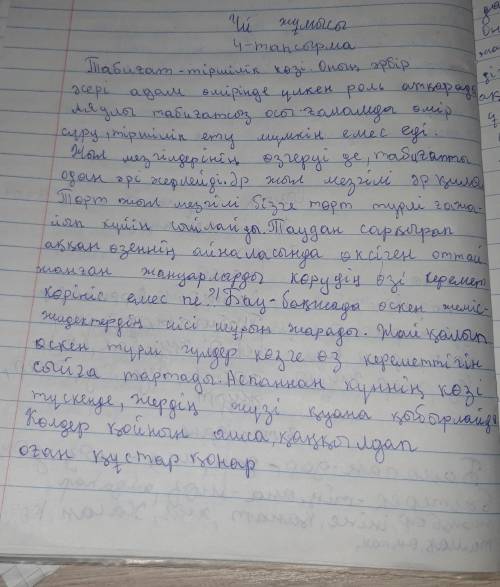 Үй жұмысы
4-тапсырма
Табиғат-тіршілік көзі. Оның әрбір
жері адам өмірінде үлкен роль атқарады
табиғатсыз осы ғаламда өмір
сүру, тіршілік ету мүмкін емес еді.
Жыл мезгілдерінің өзгеруі де, табиғатты
одан әрі Әр жыл мезгілі әр қилы
Төрт жыл мезгілі бізге төрт түрлі ғажа-
йып күйін сыйлайды. Таудан сарқырап
аққан өзеннің айналасында өскен оттай
жанған жануарларды көрудің өзі керемет
көрініс емес пе?! Бау-бақшада өскен жеміс-
жидектердің иісі мұрын жарады. Жайқалып
өскен түрлі гүлдер көзге өз кереметтігін
сыйға тартады. Аспаннан күннің көзі
түскенде, жердің жүзі қуана қыбырлайды
Көлдер қойнын ашса, қаңқылдап
оған құстар қонар